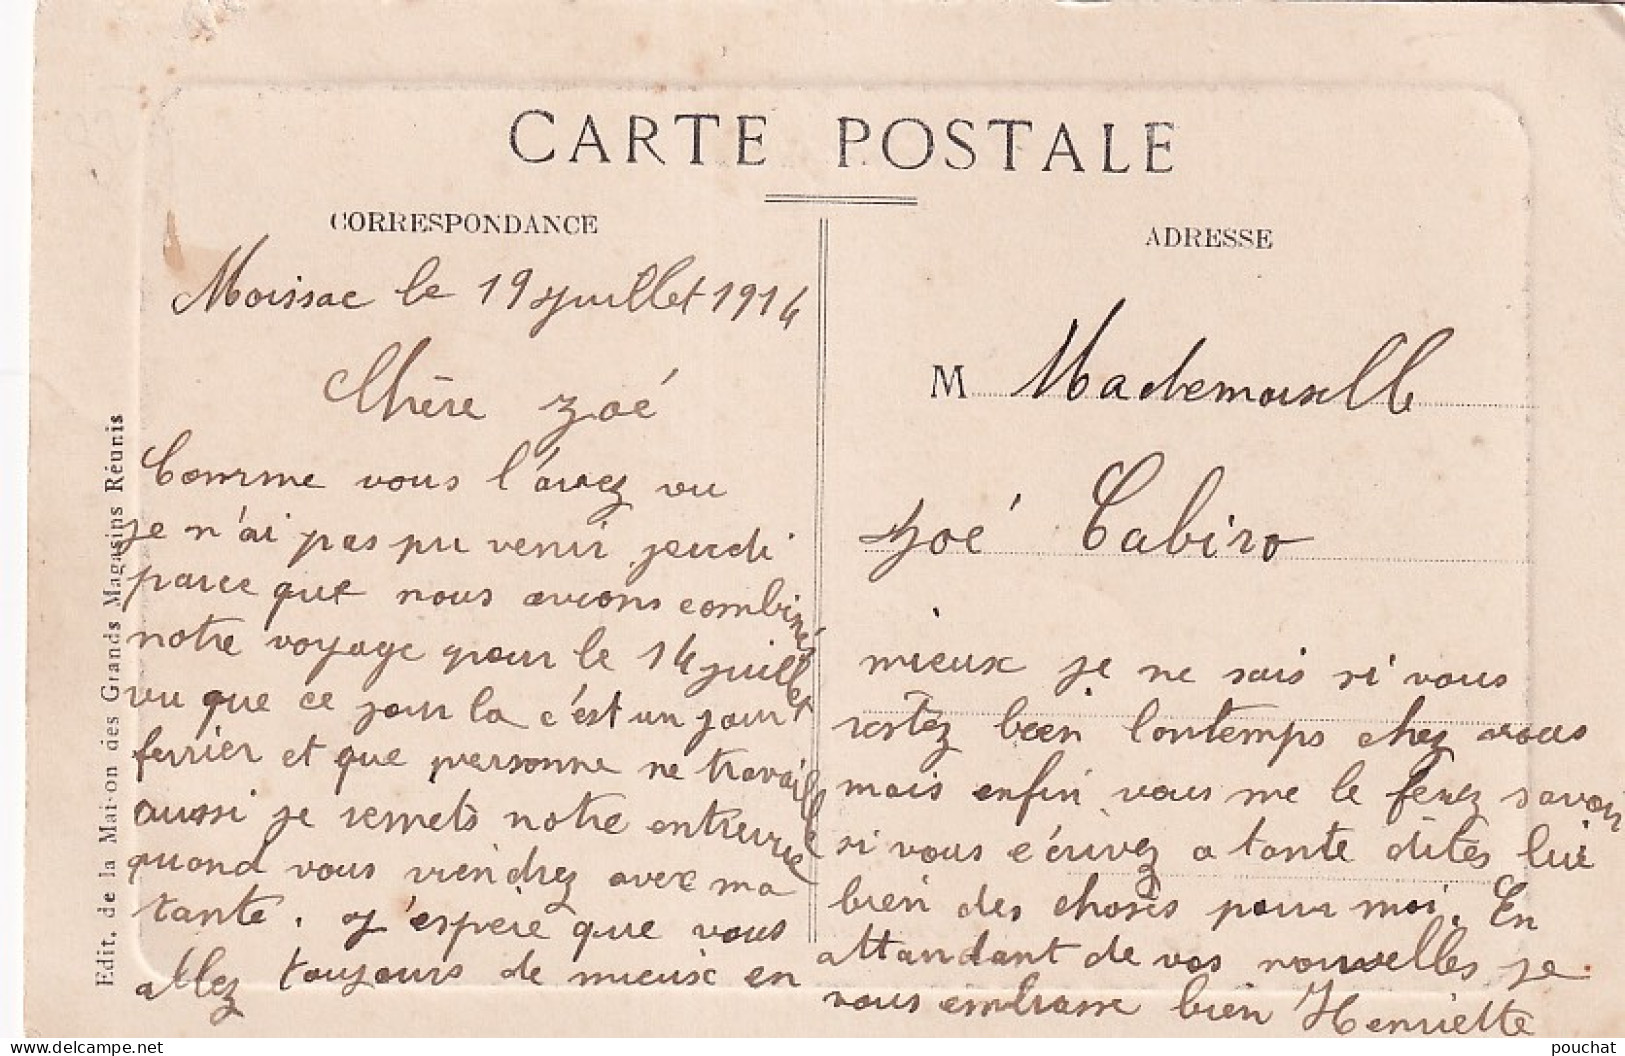 CARTE POSTALE
CORRESPONDANCE
Moissac le 19 juillet 1914
Chère Zoé
Comme vous l'avez vu
je n'ai pas pu venir jeudi
parce que nous avions combinés
notre voyage pour le 14 juillet
vu que ce jour la c'est un jour
ferrier et que personne ne travaille
aussi je remets notre entrevue
quand vous viendrez avec ma
tante. J'espère que vous
allez toujours de mieux en
ADRESSE
M Mademoiselle
Zoé Cabiro
mieux je ne sais si vous
restez bien lontemps chez vous
mais enfin vous me le ferez savoir
si vous écrivez a tante dites lui
bien des choses pour moi. En
attandant de vos nouvelles je
vous embrasse bien Henriette
Edit. de la Maison des Grands Magasins Réunis
pouchat